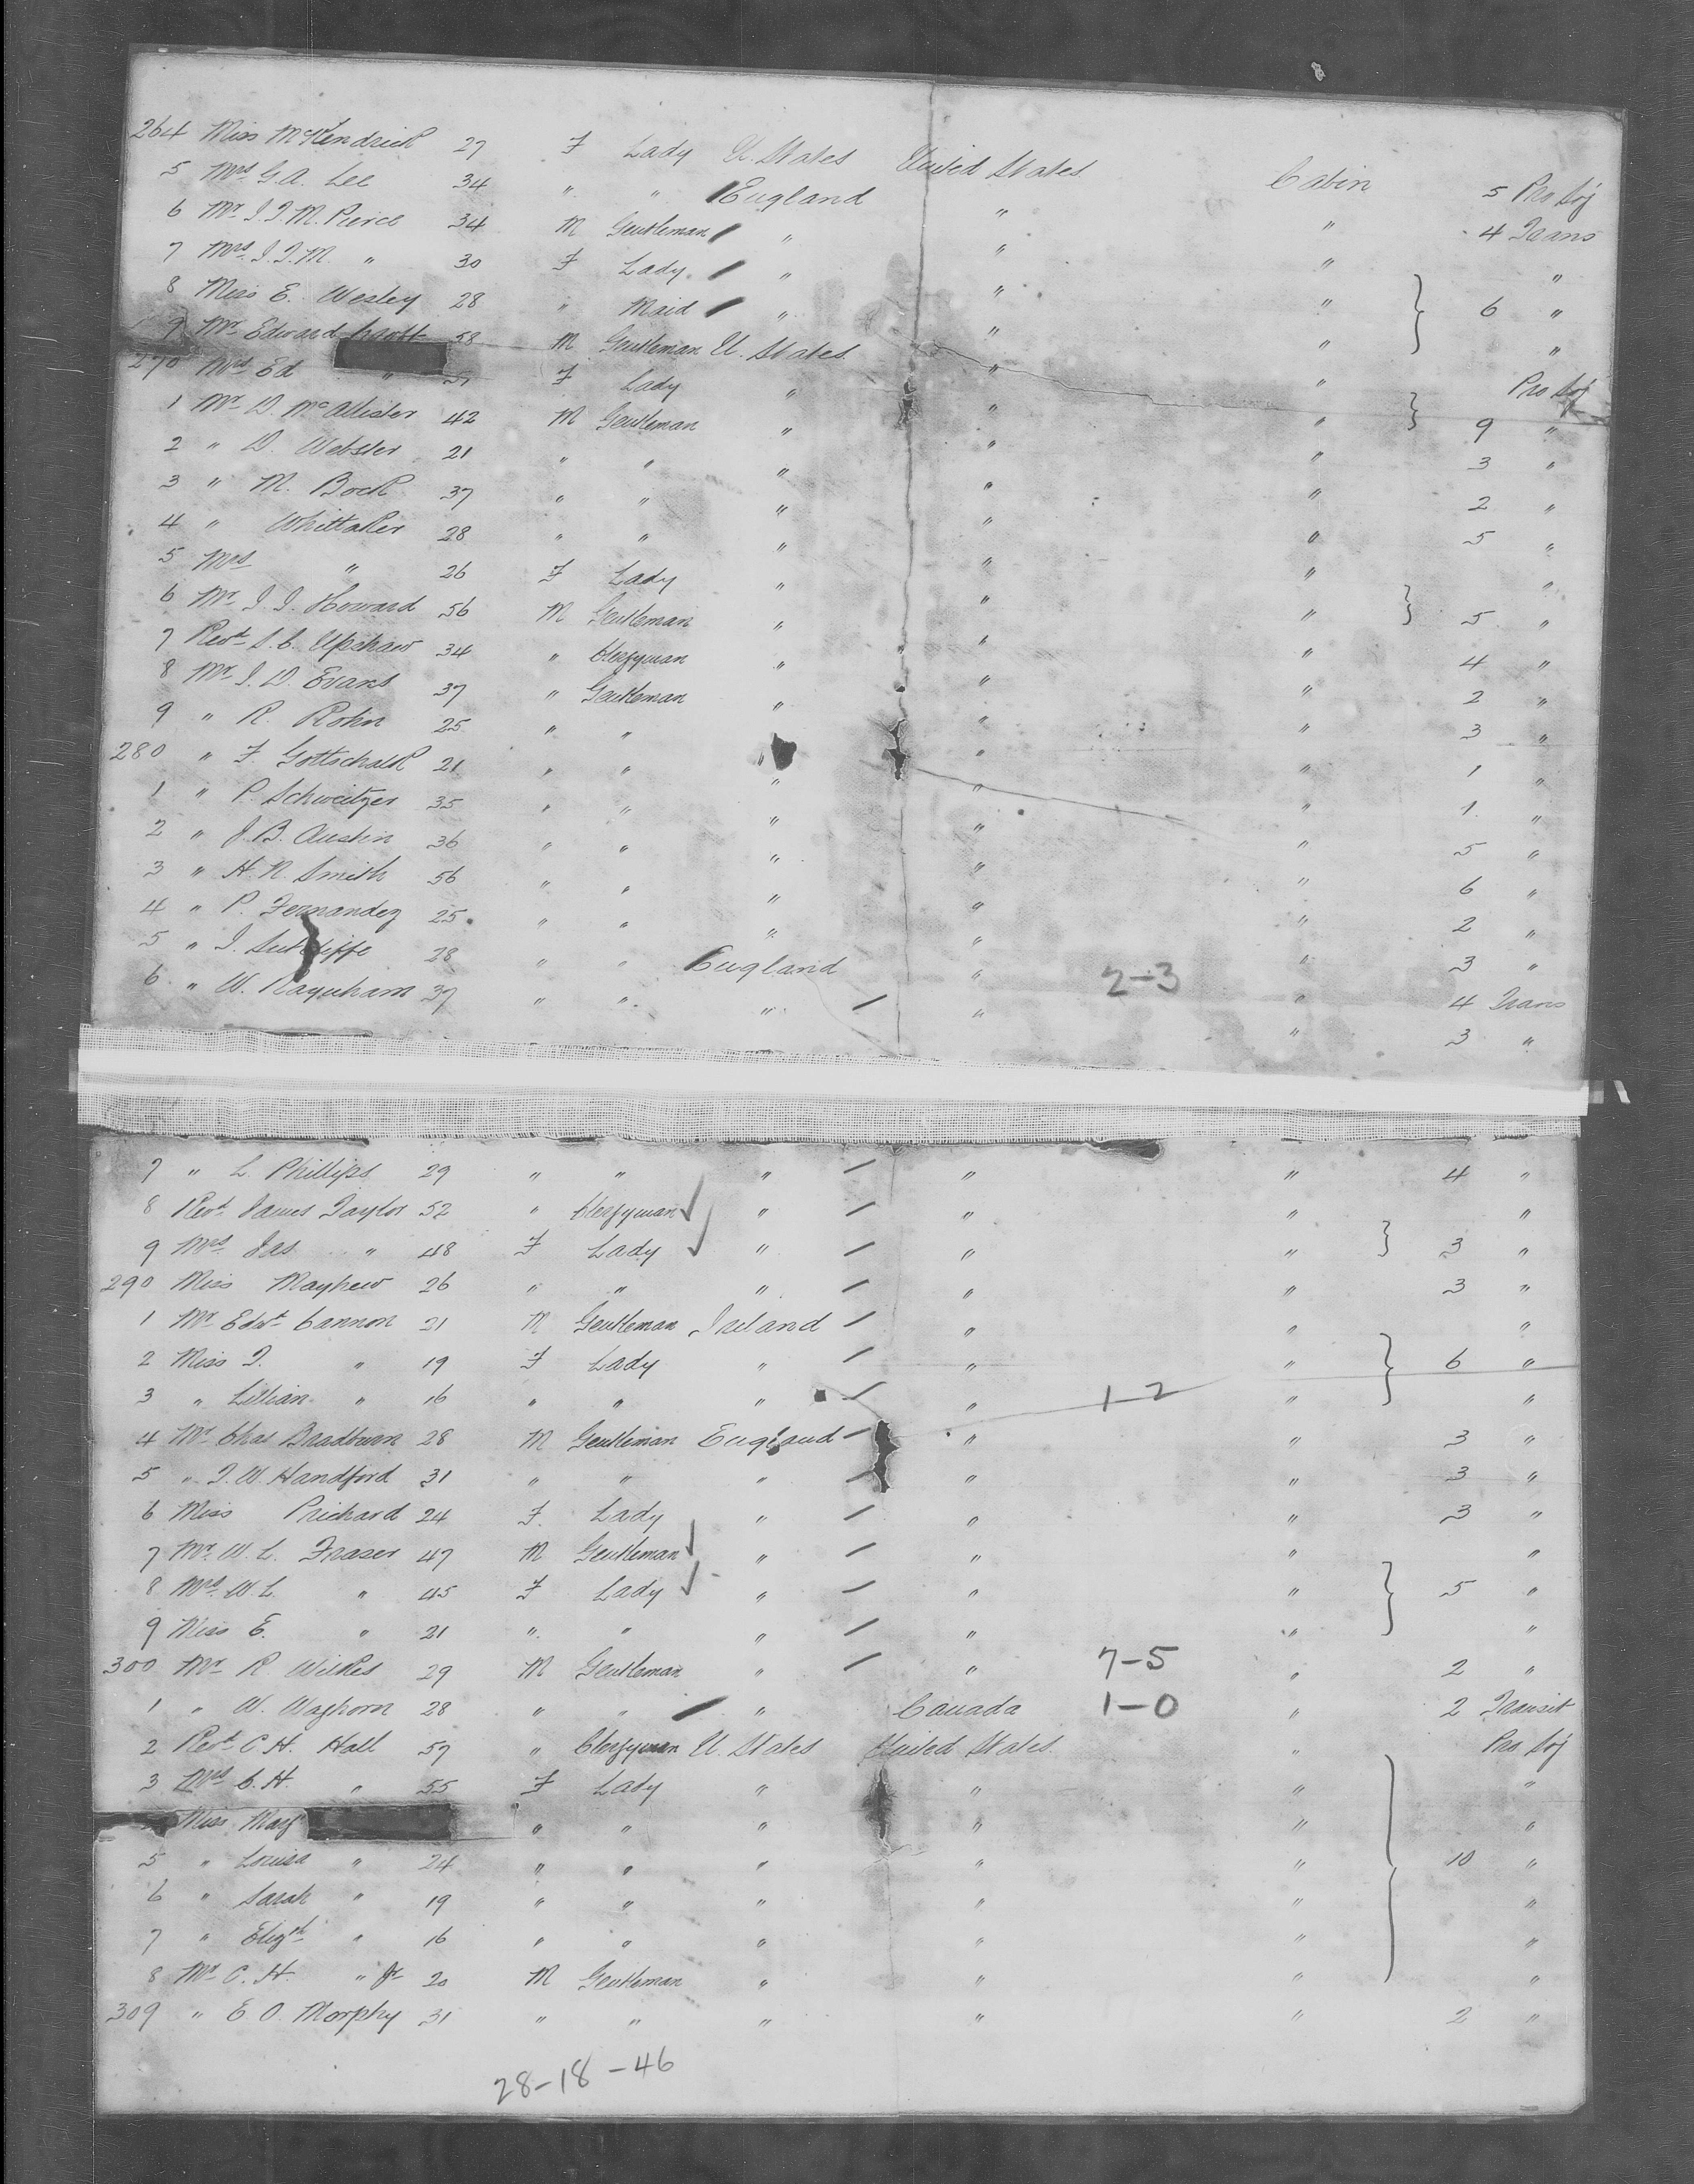 264 Miss McKendrick 27 F Lady U. States United States Cabin 5 Pro Soj
5 Mrs G.A. Lee 34 " " England " " 4 Trans
6 Mr J.J.M. Pierce 34 M Gentleman " " " "
7 Mrs J.J.M. " 30 F Lady " " " 6 "
8 Miss E. Wesley 28 " Maid " " " "
9 Mr Edward 58 M Gentleman U. States " " Pro Soj
270 Mrs Ed " F Lady " " " 9 "
1 Mr D. McAllister 42 M Gentleman " " " 3 "
2 " D. Webster 21 " " " " " 2 "
3 " M. Bock 37 " " " " " 5 "
4 " Whittaker 28 " " " " " "
5 Mrs " 26 F Lady " " " 5 "
6 Mr J.J. Howard 56 M Gentleman " " " 4 "
7 Revd S.C. Upshaw 34 " Clergyman " " " 2 "
8 Mr J.D. Evans 37 " Gentleman " " " 3 "
9 " R. Rohn 25 " " " " " 1 "
280 " F. Gottschalk 21 " " " " " 1 "
1 " P. Schweitzer 35 " " " " " 5 "
2 " J.B. Austin 36 " " " " " 6 "
3 " H.N. Smith 56 " " " " " 2 "
4 " P. Fernandez 25 " " " " " 3 "
5 " J. Sutcliffe 28 " " England " 2-3 " 4 Trans
6 " W. Raynham 37 " " " " " 3 "
7 " L. Phillips 29 " " " " " 4 "
8 Revd James Taylor 52 " Clergyman " " " "
9 Mrs Jas " 48 F Lady " " " 3 "
290 Miss Mayhew 26 " " " " " 3 "
1 Mr Edwd Cannon 21 M Gentleman Ireland " " "
2 Miss J. " 19 F Lady " " " 6 "
3 " Lillian " 16 " " " " 1-2 " "
4 Mr Chas Bradburn 28 M Gentleman England " " 3 "
5 " J.W. Handford 31 " " " " " 3 "
6 Miss Prichard 24 F. Lady " " " 3 "
7 Mr W.L. Fraser 47 M Gentleman " " " "
8 Mrs W.L. " 45 F Lady " " " 5 "
9 Miss E. " 21 " " " " " "
300 Mr R. Wilkes 29 M Gentleman " " 7-5 " 2 "
1 " W. Waghorn 28 " " " Canada 1-0 " 2 Transit
2 Revd C.H. Hall 57 " Clergyman U. States United States " Pro Soj
3 Mrs C.H. " 55 F Lady " " " "
Miss May " " " " " "
5 " Louisa " 24 " " " " " 10 "
6 " Sarah " 19 " " " " " "
7 " Elizth " 16 " " " " " "
8 Mr C.H. " Jr 20 M Gentleman " " " "
309 " E.O. Morphy 31 " " " " " 2 "
28-18-46